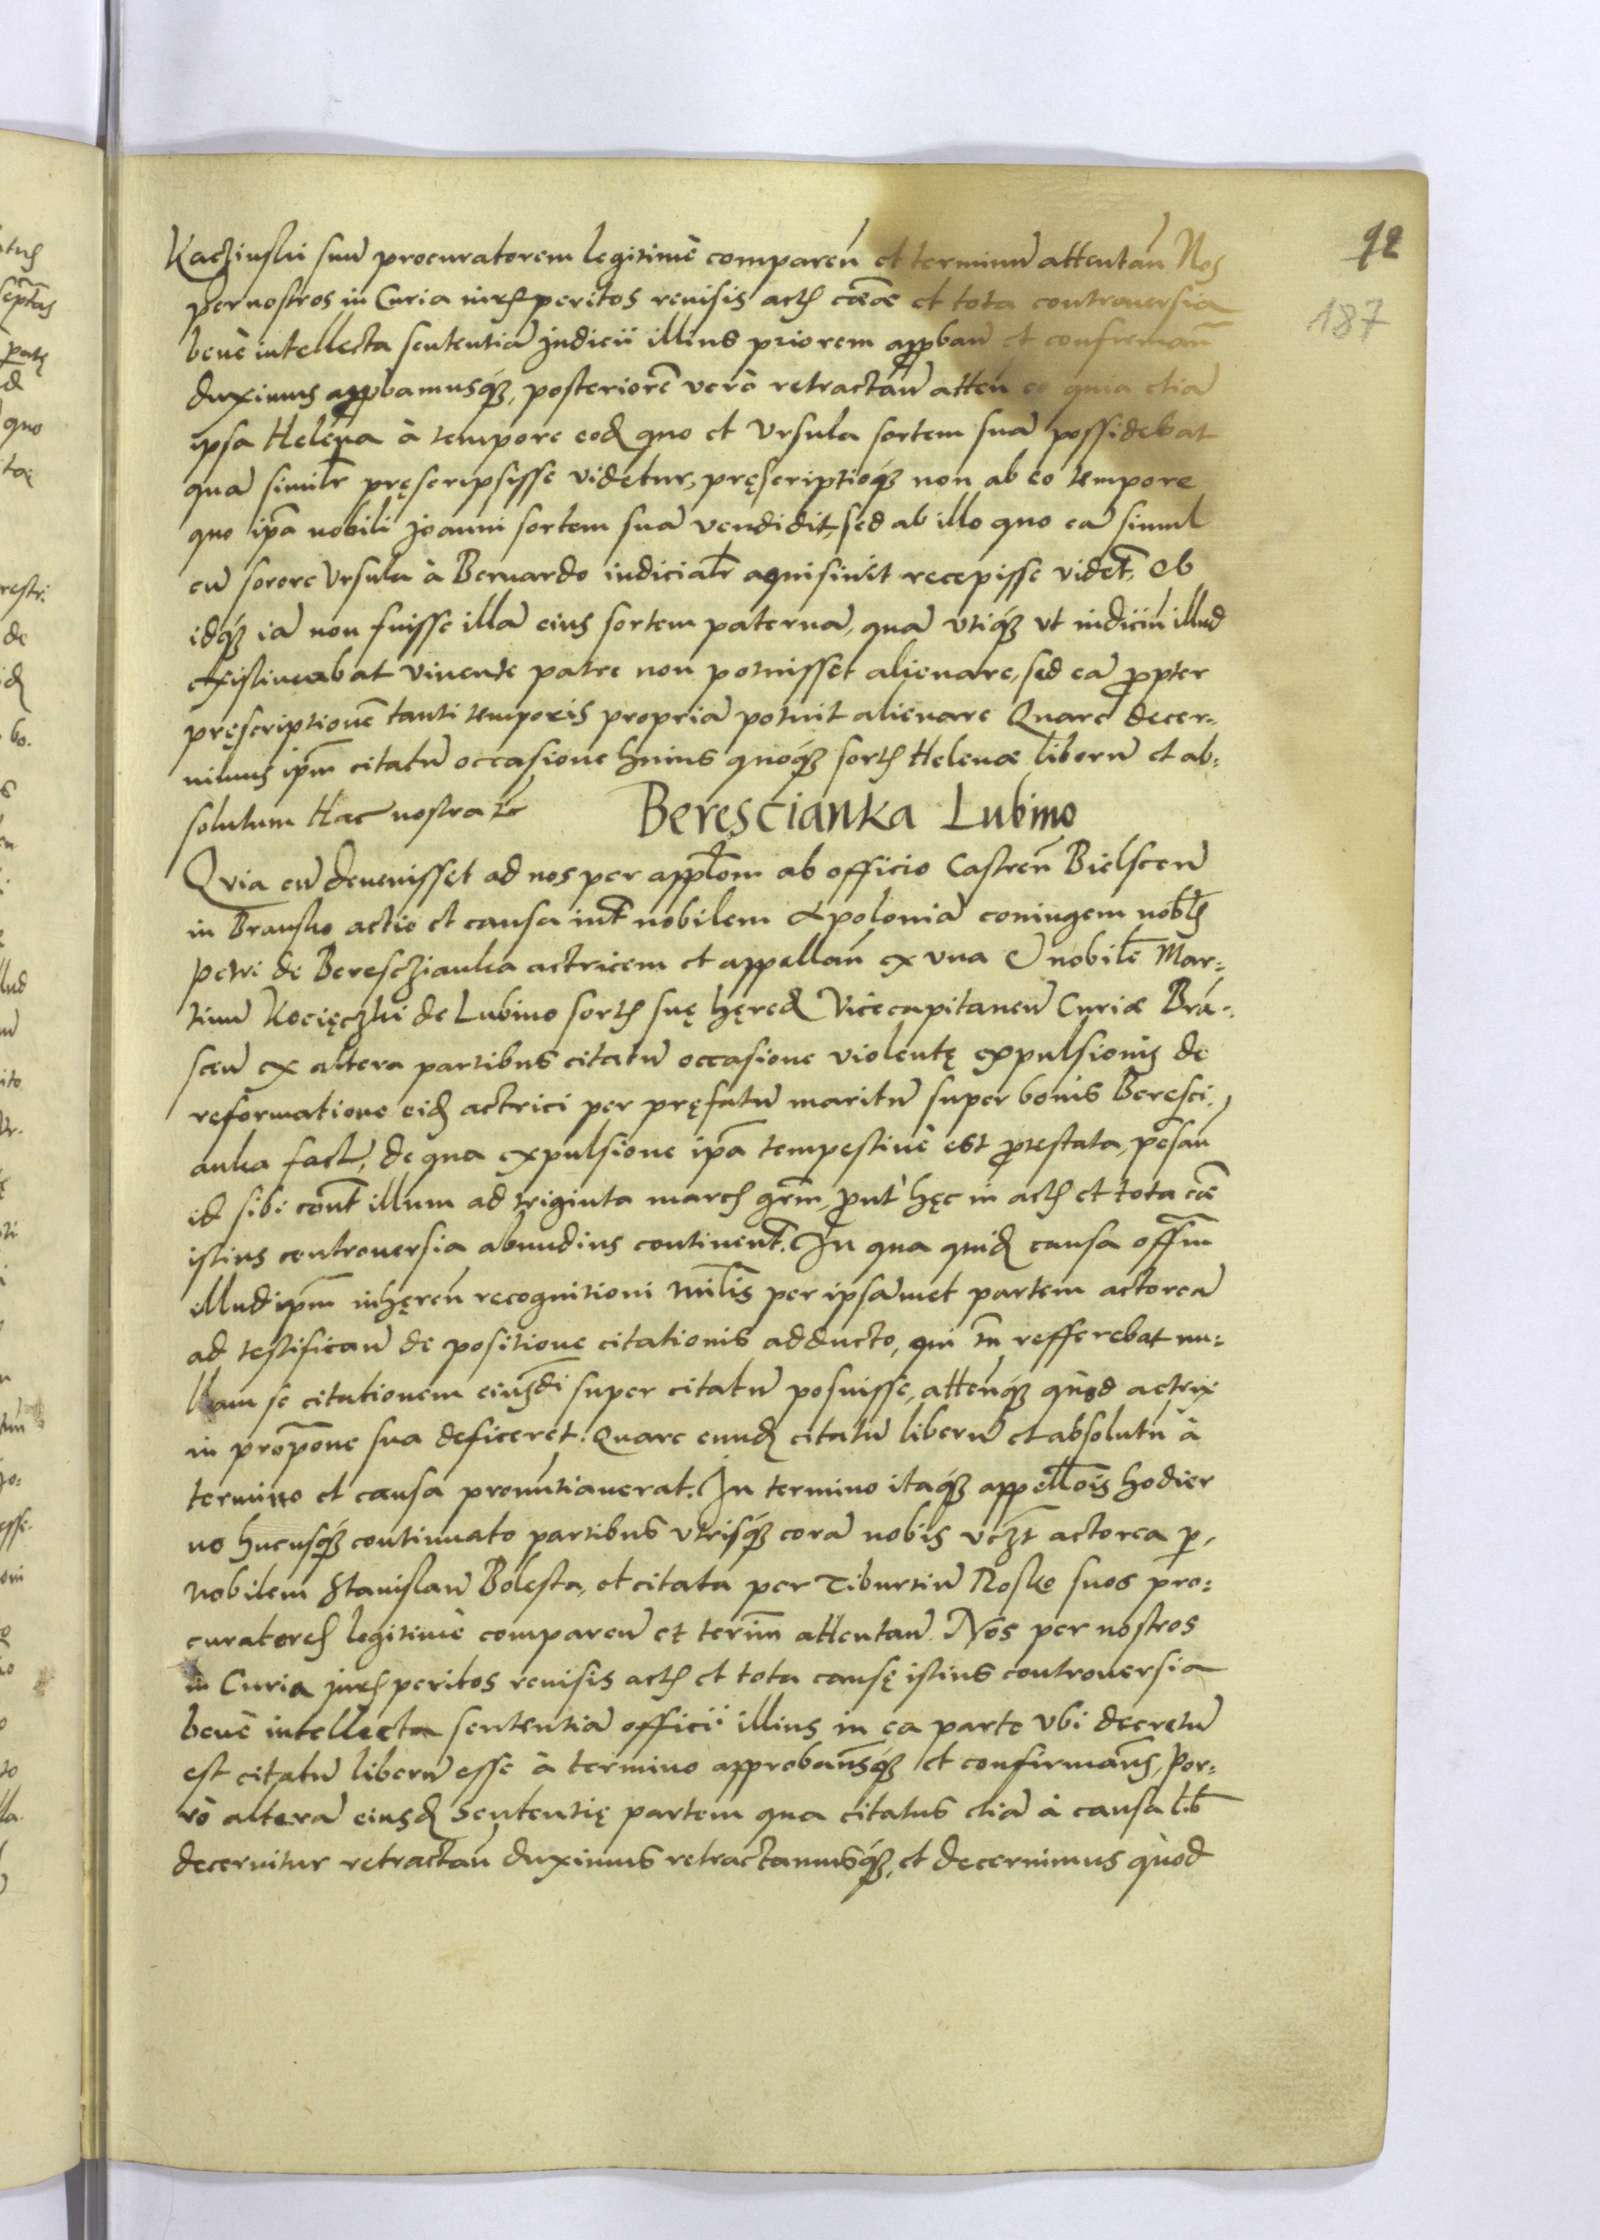 92
187
Kaczinski suũ procuratorem legitimè compareñ et terminũ attentañ Nos
per nostros in Curia iurisperitos reuisis actis cãæ et tota controuersia
benè intellecta sententiã Judicii illius priorem approbañ et confirmañ
duximus approbamusq3, posteriorẽ verò retractañ atteñ eo quia etiã
ipsa Helena à tempore eod quo et Vrsula sortem suã possidebat
quã similr pręscripsisse videtur, pręscriptioq3 non ab eo tempore
quo ipã nobili Joanni sortem suã vendidit, sed ab illo quo eã simul
cũ sorore Vrsula à Bernardo iudicialr aquisiuit recepisse videt, Ob
idq3 iã non fuisse illã eius sortem paternã, quã vtiq3 vt iudiciũ illud
existimabat viuente patre non potuisset alienare, sed eã propter
pręscriptionẽ tanti temporis propriã potuit alienare Quare decer-
nimus ipm citatũ occasione huius quoq3 sortis Helenæ liberũ et ab:
solutum Hac nostra etc
Berescianka Lubino
Qvia cũ deuenisset ad nos per appłom ab officio Castreñ Bielsceñ
in Bransko actio et causa int nobilem Apoloniã coniugem nobłis
Petri de Beresczianka actricem et appellañ ex vna et nobilẽ Mar-
tinũ Kocięczki de Lubino sortis suę hęred Vicecapitaneũ Curiæ Brã-
sceñ ex altera partibus citatũ occasione violentę expulsionis de
reformatione eid actrici per pręfatũ maritũ super bonis Beresci-
anka fact, de qua expulsione ipã tempestiuè est protestata, pesañ
id sibi cont illum ad triginta marcis grm, prout hęc in actis et tota cãæ
istius controuersia abundius continent. In qua quid causa offm
illud ipm inhęreñ recognitioni Mìlis per ipsãmet partem actoreã
ad testificañ de positione citationis adducto, qui tñ refferebat nu:
llam se citationem eiusdi super citatũ posuisse, atteñq3 quòd actrix
in propone sua deficeret. Quare eund citatũ liberũ et absolutũ à
termino et causa pronũtiauerat. In termino itaq3 appellois hodier
no hucusq3 continuato partibus vtrisq3 corã nobis vczt actorea p
nobilem Stanislaũ Bolesta, et citata per Tiburtiũ Nosko suos pro:
curatores legitimè compareñ et termm attentañ. Nos per nostros
in Curia juris peritos reuisis actis et tota causę istius controuersia
benè intellecta sententiã officii illius in ea parte vbi decretũ
est citatũ liberũ esse à termino approbamsq3 et confirmams, Por-
rò alterã eiusd sententię partem qua citatus etiã à causa lib
decernitur retractañ duximus retractamusq3, et decernimus quòd